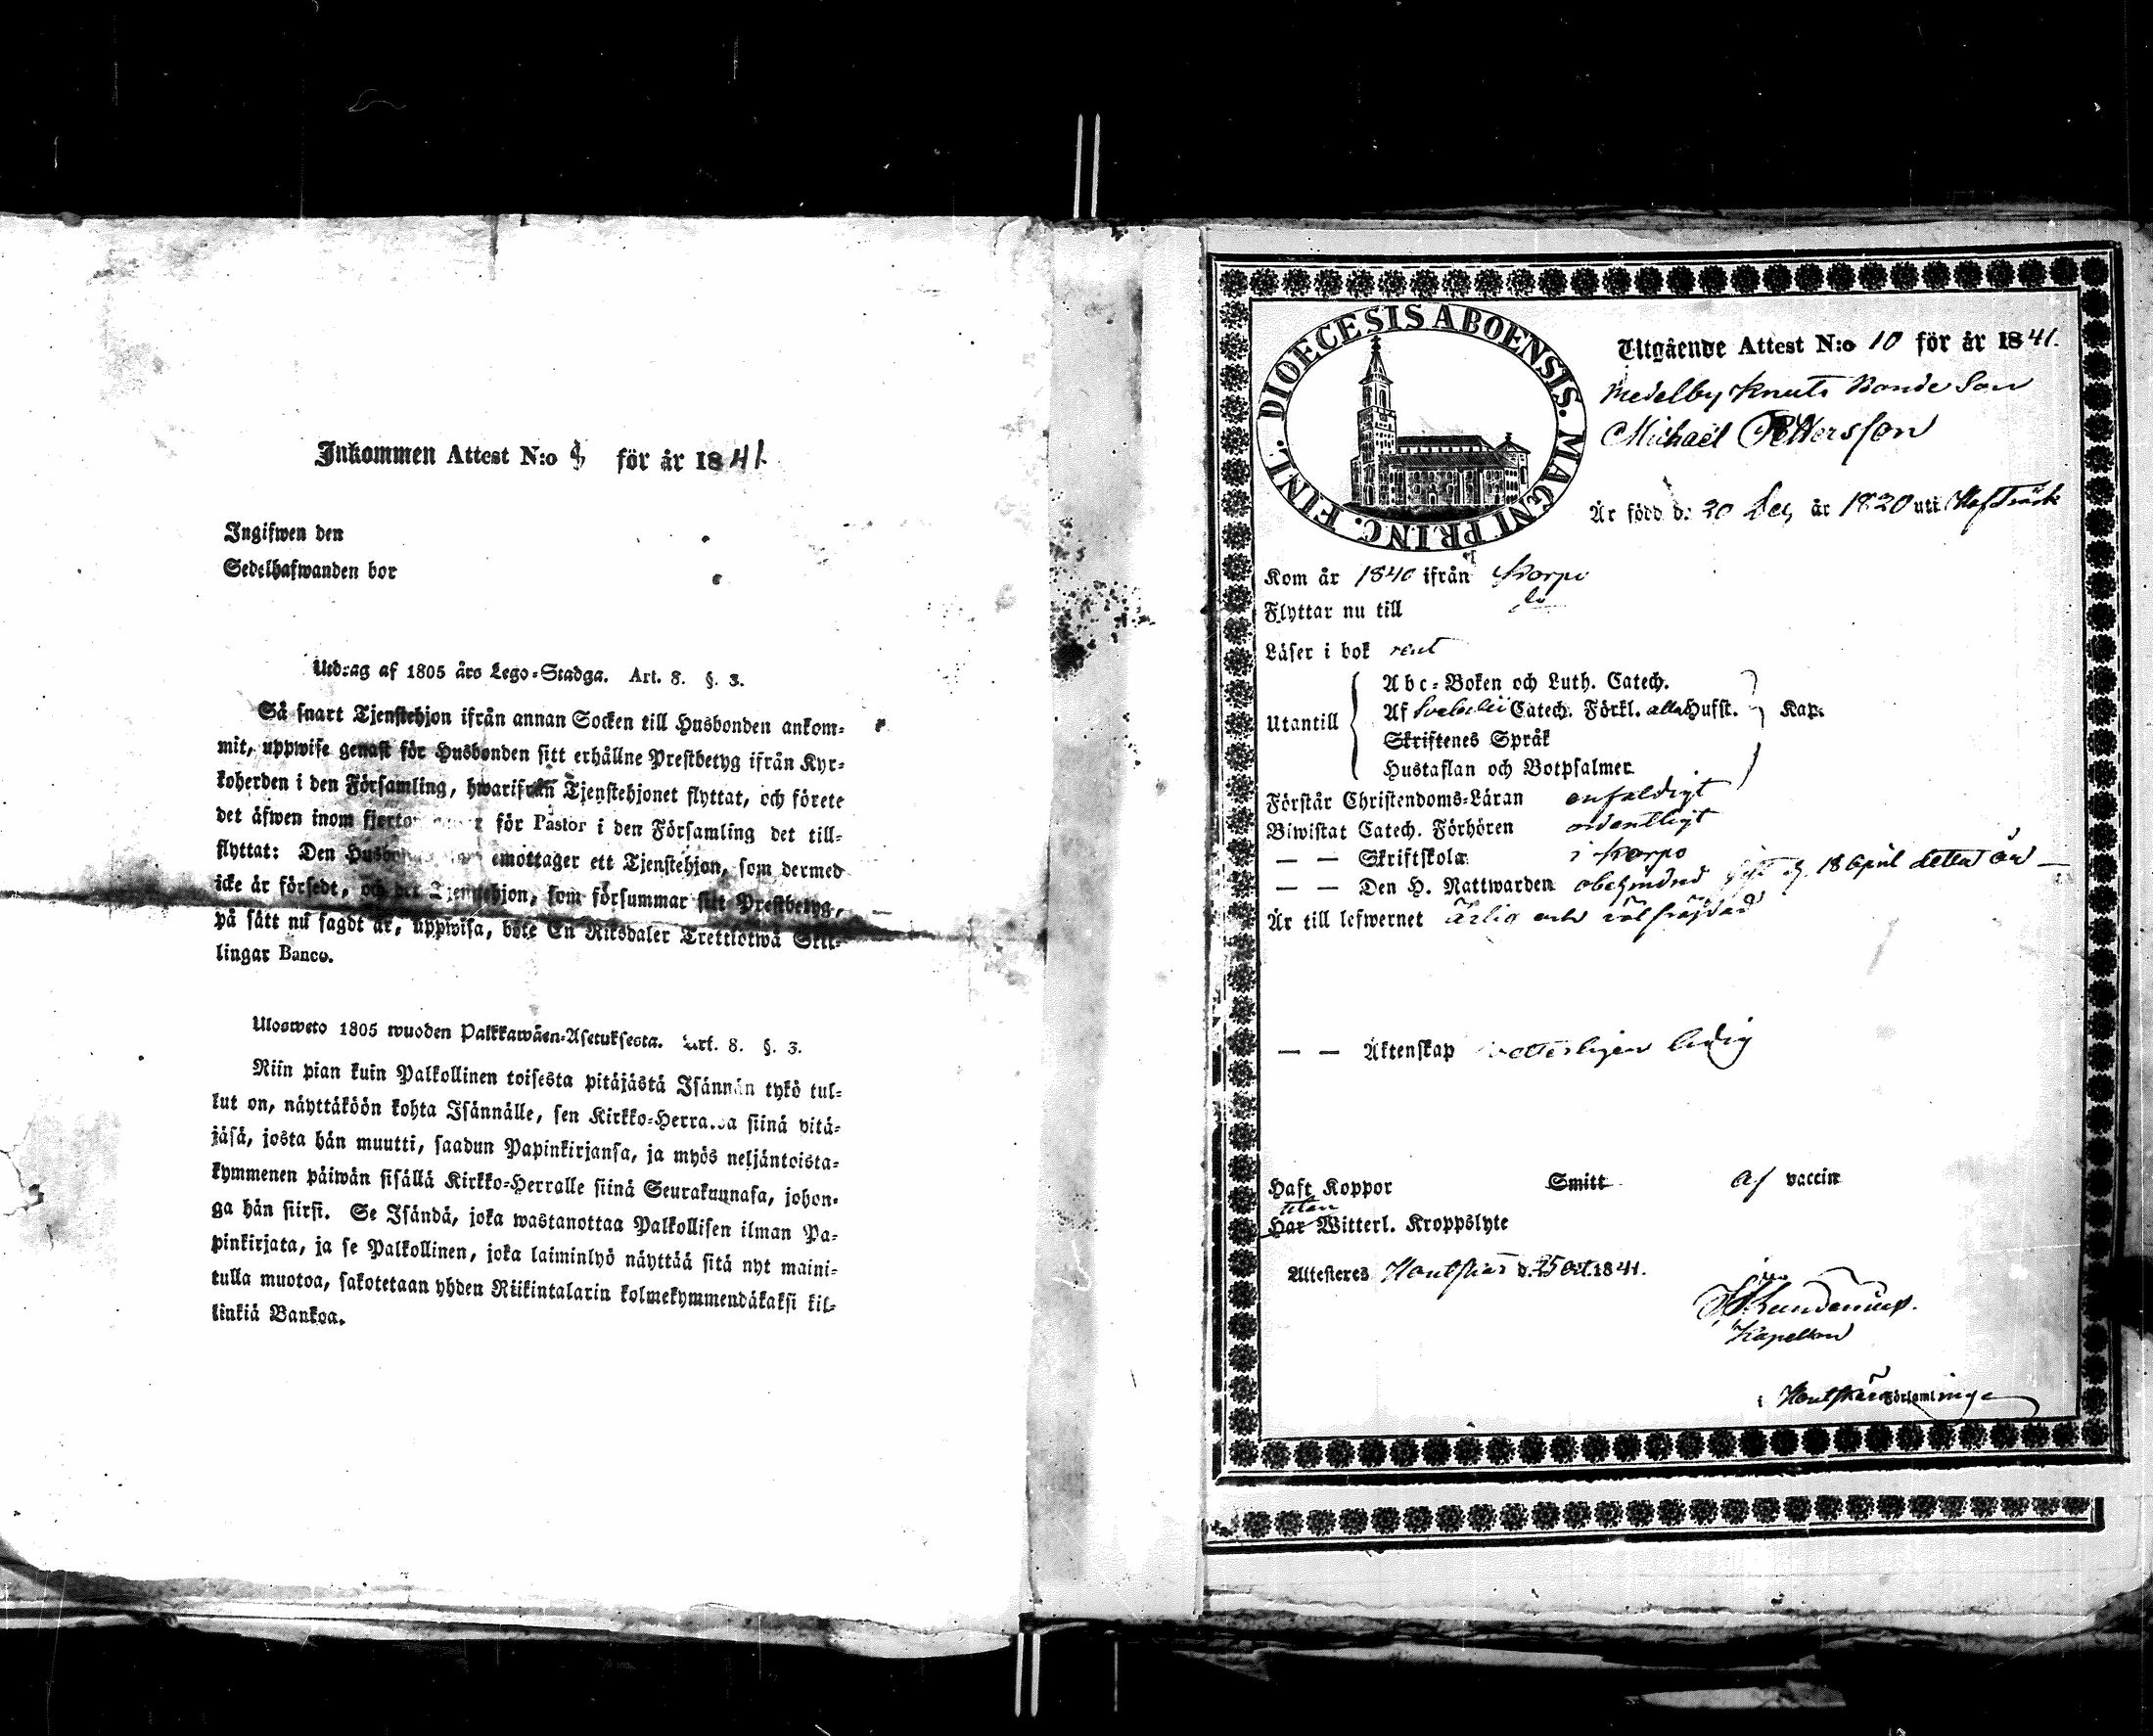 Inkommen Attest N:o för år 1841.
Ingifwen den
Sedelhafwanden bor
Utdrag af 1805 års Lego-Stadga. Art. 8. §. 3.
Så snart Tjenstehjon ifrån annan Socken till Husbonden ankom-
mit, uppwise genast för Husbonden sitt erhållne Prestbetyg ifrån Kyr-
koherden i den Församling, hwarifrån Tjenstehjonet flyttat, och förete
det äfwen inom för Pastor i den Församling det till-
flyttat: Den emottager ett Tjenstehjon, som dermed
icke är försedt, och det Tjenstehjon, som försummar sitt Prestbetyg,
på sätt nu sagdt är, uppwisa, böte En Riksdaler Trettiotwå Skil-
lingar Banco.
Uloswetо 1805 wuoden Palkkawäen-Asetuksesta. Art. 8. §. 3.
Niin pian kuin Palkollinen toisesta pitäjästä Isännän tykö tul-
lut on, näyttäköön kohta Isännälle, sen Kirkko-Herralda siinä pitä-
jäsä, josta hän muutti, saadun Papinkirjansa, ja myös neljäntoista-
kymmenen päiwän sisällä Kirkko-Herralle siinä Seurakunnasa, johon-
ga hän siirsi. Se Isändä, joka wastanottaa Palkollisen ilman Pa-
pinkirjata, ja se Palkollinen, joka laiminlyö näyttää sitä nyt maini-
tulla muotoa, sakotetaan yhden Riikintalarin kolmekymmendäkaksi kil-
linkiä Bankoa.
DIOECESIS ABOENSIS. MAGNI PRINC. FINL.
Utgående Attest N:o 10 för år 1841.
Medelby Knuts Bonde Son
Michaël Pettersson
Är född d. 30 Dec. år 1820 uti
Kom år 1840 ifrån Korpo
Flyttar nu till do
Läser i bok rent
Utantill
Abc-Boken och Luth. Catech.
Af Svebelii Catech. Förkl. alla Hufst. Kap.
Skriftenes Språk
Hustaflan och Botpsalmer
Förstår Christendoms-Läran enfaldigt
Biwistat Catech. Förhören ordentligt
— — Skriftskola i Korpo
— — Den H. Nattwarden 18 April detta år
Är till lefwernet ärlig och väl fräjdad
— — Äktenskap vetterligen ledig
Haft Koppor Smitt af vaccin
utan
Har Witterl. Kroppslyte
Attesteres Houtskär d. 25 Oct. 1841.
Kapellan
i Houtskär Församlinge